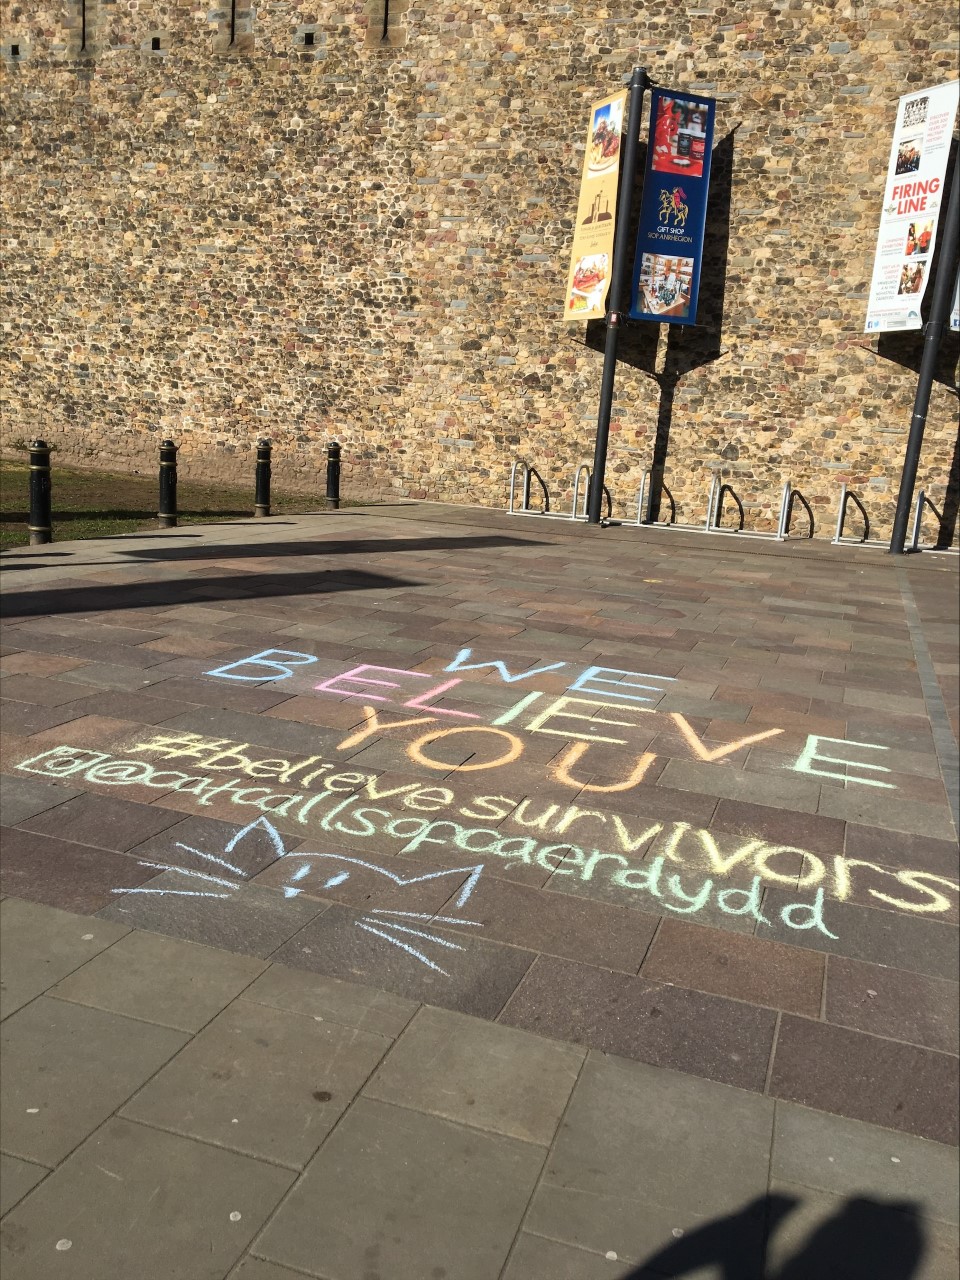 GIFT SHOP
SIOP ANRHEGION
FIRING
LINE
WE
BELIEVE
YOU
#believesurvivors
@catcallsofcaerdydd